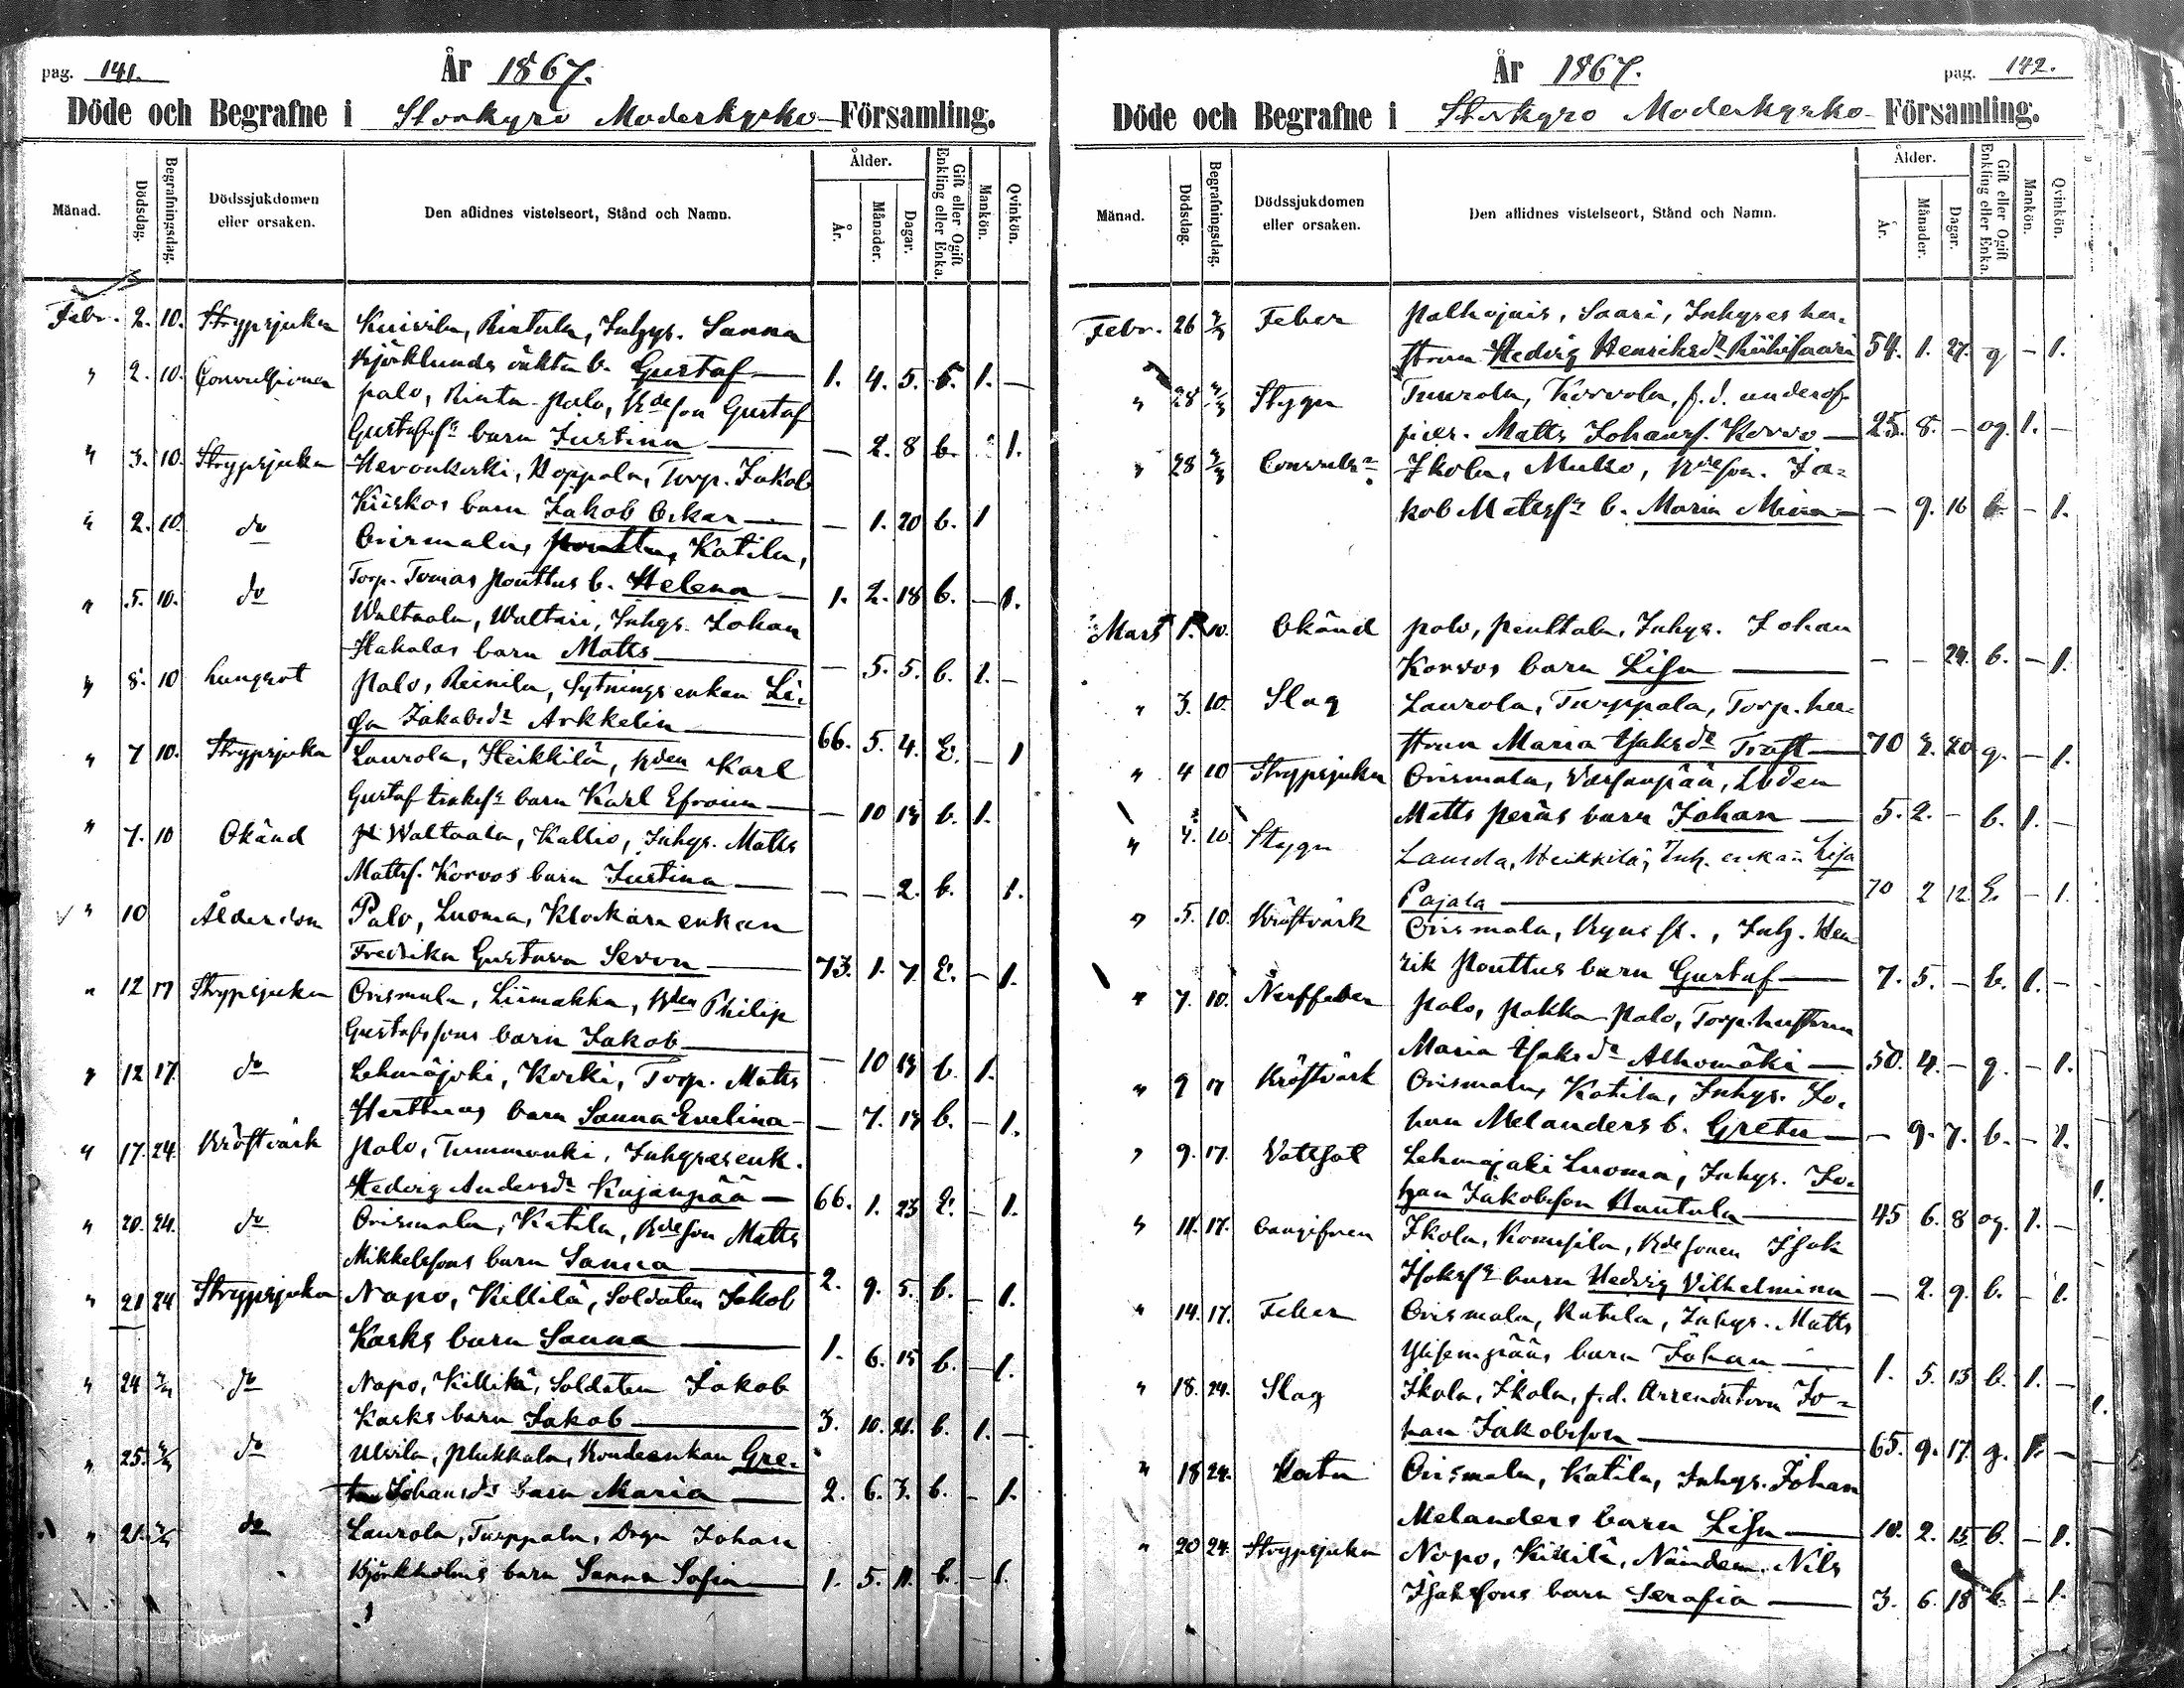 pag. 141.
År 1867.
Döde och Begrafne i Storkyro Moderkyrko Församling.
Månad. Dödsdag. Begrafningsdag. Dödssjukdomen eller orsaken. Den aflidnes vistelseort, Stånd och Namn. Ålder. År. Månader. Dagar. Gift eller Ogift Enkling eller Enka. Mankön. Qvinkön.
Febr. 2. 10. Strypsjuka Kuivila, Rintala, Inhys. Sanna
Björklunds oäkta b. Gustaf — 1. 4. 5. b. 1. —
" 2. 10. Convulsioner palo, Rinta-palo, Bdeson Gustaf
Gustafss barn Justina — — 2. 8 b. 1.
" 3. 10. Strypsjuka Hevonkoski, Koppala, Torp. Jakob
Kiiskos barn Jakob Oskar — — 1. 20 b. 1
" 2. 10. do Orismala, Katila,
Torp. Tomas Pouttus b. Helena — 1. 2. 18 b. — 1.
" 5. 10. do Waltaala, Waltari, Inhys. Johan
Hakalas barn Matts — — 5. 5. b. 1. —
" 8. 10 Lungsot Palo, Reinila, Sytningsenkan Li-
sa Jakobsdr Arkkelin — 66. 5. 4. E. — 1
" 7 10. Strypsjuka Laurola, Heikkilä, Bden Karl
Gustaf Isaksss barn Karl Efraim — — 10 13 b. 1.
" 7. 10 Okänd Waltaala, Kallio, Inhys. Matts
Mattss. Korvos barn Justina — — — 2. b. 1.
" 10 Ålderdom Palo, Luoma, Klockare enkan
Fredrika Gustava Sevon — 73. 1. 7. E. — 1.
" 12 17 Strypsjuka Orismala, Liimakka, Bden Philip
Gustafssons barn Jakob — — 10 13 b. 1.
" 12 17. do Lehmäjoki, Korki, Torp. Matts
Herttuas barn Sanna Evelina — — 7. 13 b. — 1.
" 17. 24. Bröstvärk Palo, Tummunki, Inhyses enk.
Hedvig Andersdr Kujanpää — 66. 1. 23 E. — 1.
" 20. 24. do Orismala, Katila, Bdeson Matts
Mikkelssons barn Sanna — 2. 9. 5. b. — 1.
" 21 24 Strypsjuka Napo, Killilä, Soldaten Jakob
Karks barn Sanna — 1. 6. 15 b. — 1.
" 24 do Napo, Killilä, Soldaten Jakob
Karks barn Jakob — 3. 10. 21. b. 1. —
" 25. do Ulvila, Plukkala, Bondeenkan Gre-
ta Johansdr barn Maria — 2. 6. 3. b. — 1.
" 21. do Laurola, Turppala, Johan
Björkholms barn Sanna Sofia — 1. 5. 11. b. — 1.
År 1867.
pag. 142.
Döde och Begrafne i Storkyro Moderkyrko- Församling.
Månad. Dödsdag. Begrafningsdag. Dödssjukdomen eller orsaken. Den aflidnes vistelseort, Stånd och Namn. Ålder. År. Månader. Dagar. Gift eller Ogift Enkling eller Enka. Mankön. Qvinkön.
Febr. 26 3/3 Feber Palhojais, Saari, Inhyses hu-
strun Hedvig Henriksdr Riihisaari 54. 1. 27. g — 1.
" 28 Stygn Tuurola, Korvola, f.d. underof-
ficer. Matts Johanss. Korvo — 25. 8. — og. 1. —
" 28 Convuls: Ikola, Mullo, Bdeson. Ja-
kob Matsss b. Maria — — 9. 16 b. — 1.
Mars 1. 10. Okänd palo, penttala, Inhys. Johan
Korvos barn Lisa — — — 24. b. — 1.
" 3. 10. Slag Laurola, Turppala, Torp. hu-
strun Maria Isaksdr Trast — 70 20 g. — 1.
" 4 10 Strypsjuka Orismala, Varsanpää, Loden
Matts peräs barn Johan — 5. 2. — b. 1. —
" 4. 10. Stygn Laurola, Heikkilä, Inh. enkan Lisa
Pajala — 70 2 12 E. — 1.
" 5. 10. Bröstvärk Orismala, Ryss st., Inh. Hen-
rik Pouttus barn Gustaf — 7. 5. — b. 1. —
" 7. 10. Nerffeber Palo, Pakka-Palo, Torp.hustrun
Maria Isaksdr Alhomäki — 50. 4. — g. — 1.
" 9 17 Bröstvärk Orismala, Katila, Inhys. Jo-
han Melanders b. Greta — — 9. 7. b. — 1.
" 9. 17. Vattsot Lehmäjoki Luoma, Inhys. Jo-
han Jakobsson Hautala — 45 6. 8 og. 1. —
" 11. 17. Oangifven Ikola, Komsila, Bdesonen Isak
Isaksss barn Hedvig Vilhelmina — 2. 9. b. — 1.
" 14. 17. Feber Orismala, Katila, Inhys. Matts
Ylisenpääs barn Johan — 1. 5. 13 b. 1. —
" 18. 24. Slag Ikola, Ikola, f.d. Arrendatorn Jo-
han Jakobsson — 65. 9. 17. g. 1. —
" 18 24. Hosta Orismala, Katila, Inhys. Johan
Melanders barn Lisa — 10. 2. 15 b. — 1.
" 20 24. Strypsjuka Napo, Killilä, Nämdem. Nils
Isakssons barn Serafia — 3. 6. 18 b. — 1.